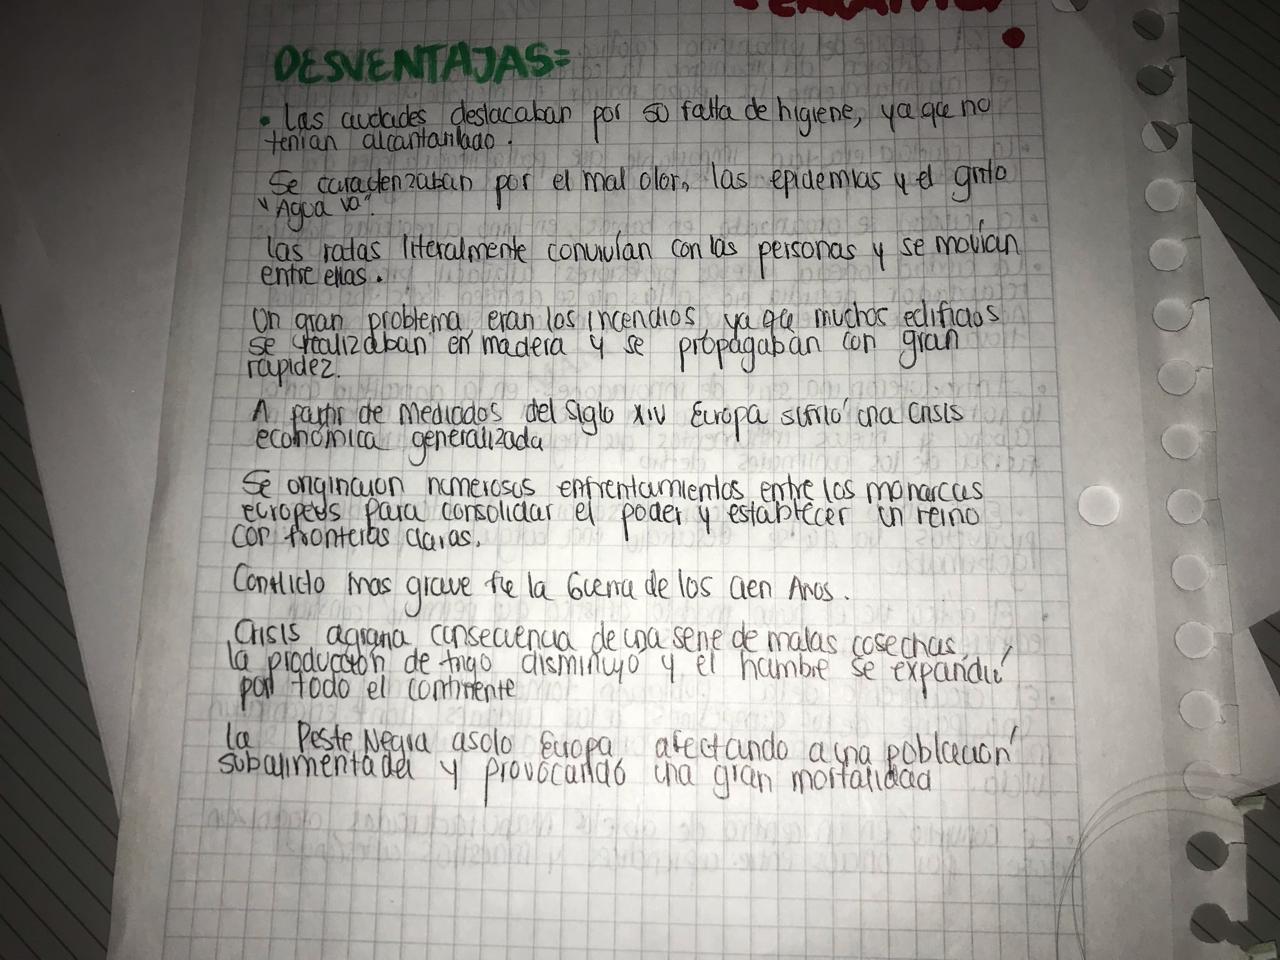 DESVENTAJAS=
• Las ciudades destacaban por su falta de higiene, ya que no
tenían alcantarillado.
Se caracterizaban por el mal olor, las epidemias y el grito
"Agua va".
Las ratas literalmente convivían con las personas y se movían
entre ellas.
Un gran problema, eran los incendios, ya que muchos edificios
se realizaban en madera y se propagaban con gran
rapidez.
A partir de mediados del siglo XIV Europa sufrió una crisis
económica generalizada
Se originaron numerosos enfrentamientos entre los monarcas
europeos para consolidar el poder y establecer un reino
con fronteras claras.
Conflicto mas grave fue la Guerra de los Cien Años.
Crisis agraria consecuencia de una serie de malas cosechas,
la producción de trigo disminuyo y el hambre se expandió
por todo el continente
La Peste Negra asolo Europa afectando a una población
subalimentada y provocando una gran mortalidad